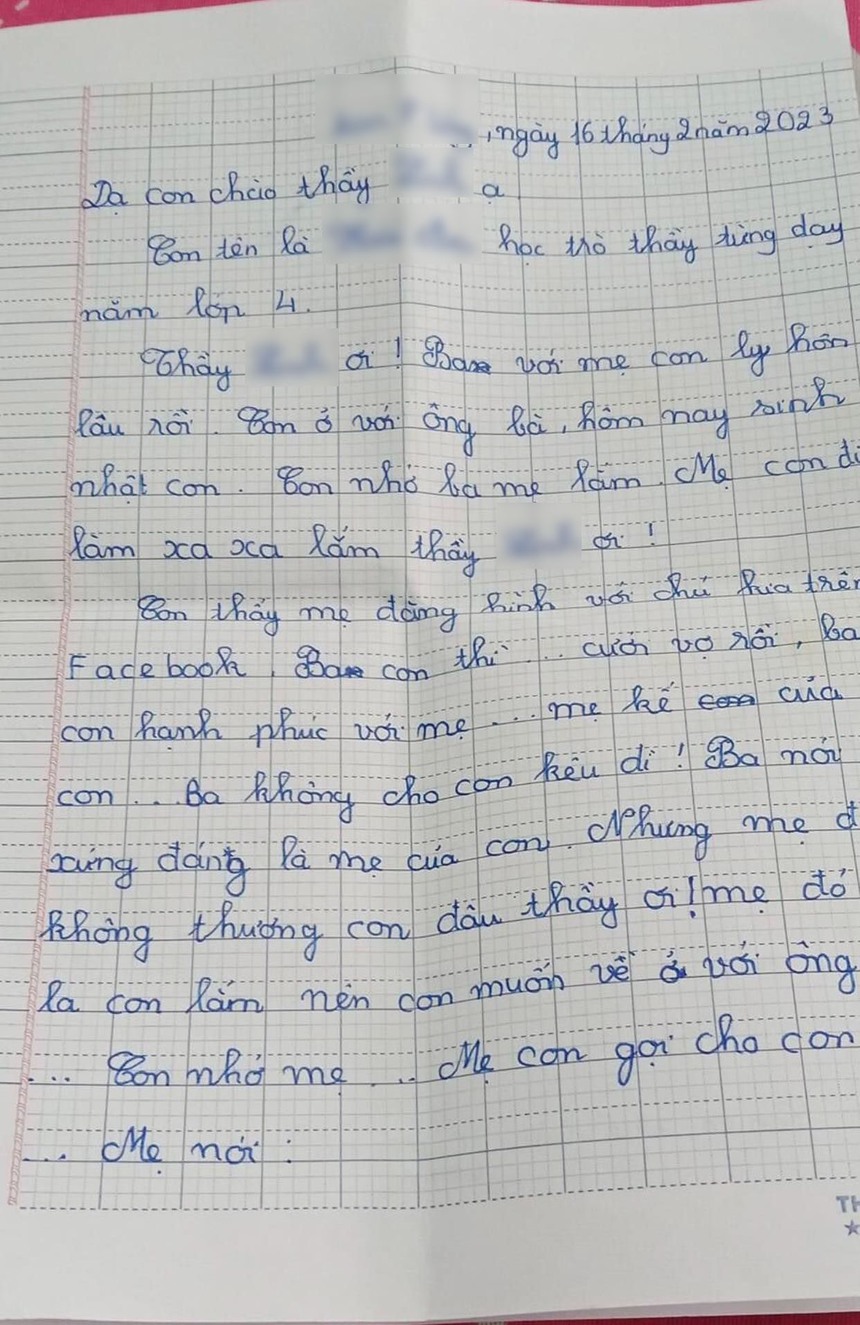 , ngày 16 tháng 2 năm 2023
Dạ con chào thầy ạ
Con tên là học trò thầy từng dạy
năm lớp 4.
Thầy ơi! Ba với mẹ con ly hôn
lâu rồi. Con ở với ông bà, hôm nay sinh
nhật con. Con nhớ ba mẹ lắm. Mẹ con đi
làm xa xa lắm thầy ơi!
Con thấy mẹ đăng hình với chú kia trên
Facebook. Ba con thì... cưới vợ rồi, Ba
con hạnh phúc với mẹ... mẹ kế của
con... Ba không cho con kêu dì! Ba nói
xứng đáng là mẹ của con. Nhưng mẹ đ
không thương con đâu thầy ơi! mẹ đó
la con lắm nên con muốn về ở với ông
... Con nhớ mẹ... Mẹ con gọi cho con
... Mẹ nói:
TH